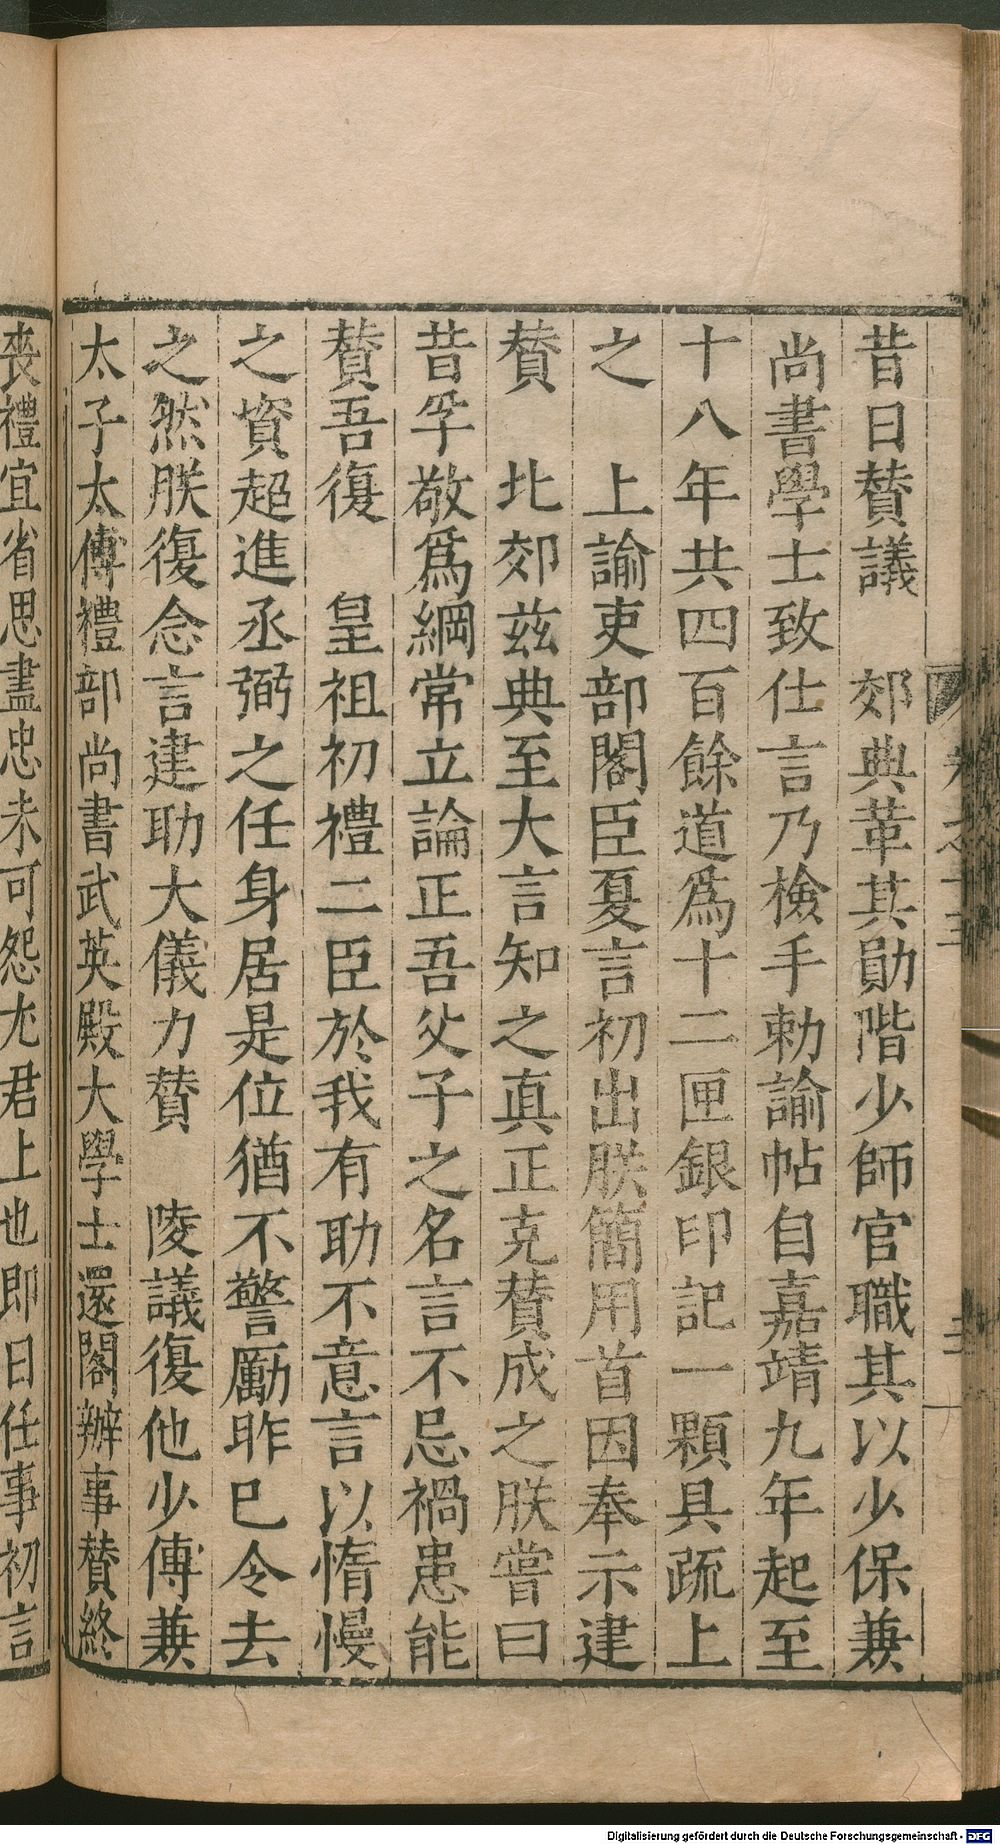 昔日賛議　郊典革其勛階少師官職其以少保兼
尚書學士致仕言乃檢手勅諭帖自嘉靖九年起至
十八年共四百餘道爲十二匣銀印記一顆具疏上
之　上諭吏部閣臣夏言初出朕簡用首因奉示建
賛　北郊茲典至大言知之真正克賛成之朕嘗曰
昔孚敬爲綱常立論正吾父子之名言不忌禍患能
賛吾復　皇祖初禮二臣於我有助不意言以惰慢
之資超進丞弼之任身居是位猶不警勵昨巳令去
之然朕復念言建助大儀力賛　陵議復他少傅兼
太子太傅禮部尚書武英殿大學士還閣辦事賛終
喪禮宜省思盡忠未可怨尤君上也即日任事初言
Digitalisierung gefördert durch die Deutsche Forschungsgemeinschaft - DFG